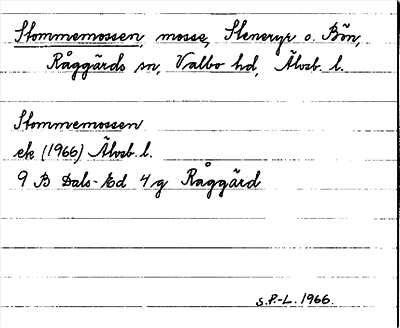 Stommemossen, mosse, Steneryr o. Bön,
Råggärds sn, Valbo hd, Älvsb. l.
Stommemossen
ek (1966) Älvsb. l.
9 B Dals-Ed 4g Råggärd
S.P-L. 1966.